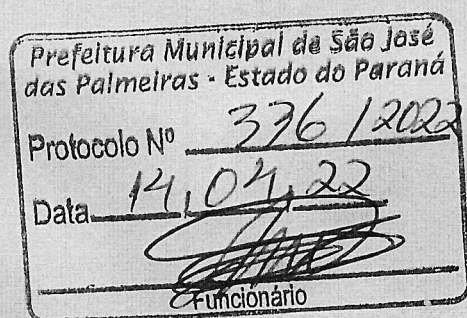 Prefeitura Municipal de São José
das Palmeiras - Estado do Paraná
Protocolo Nº 336 / 2022
Data 14, 04, 22
Funcionário